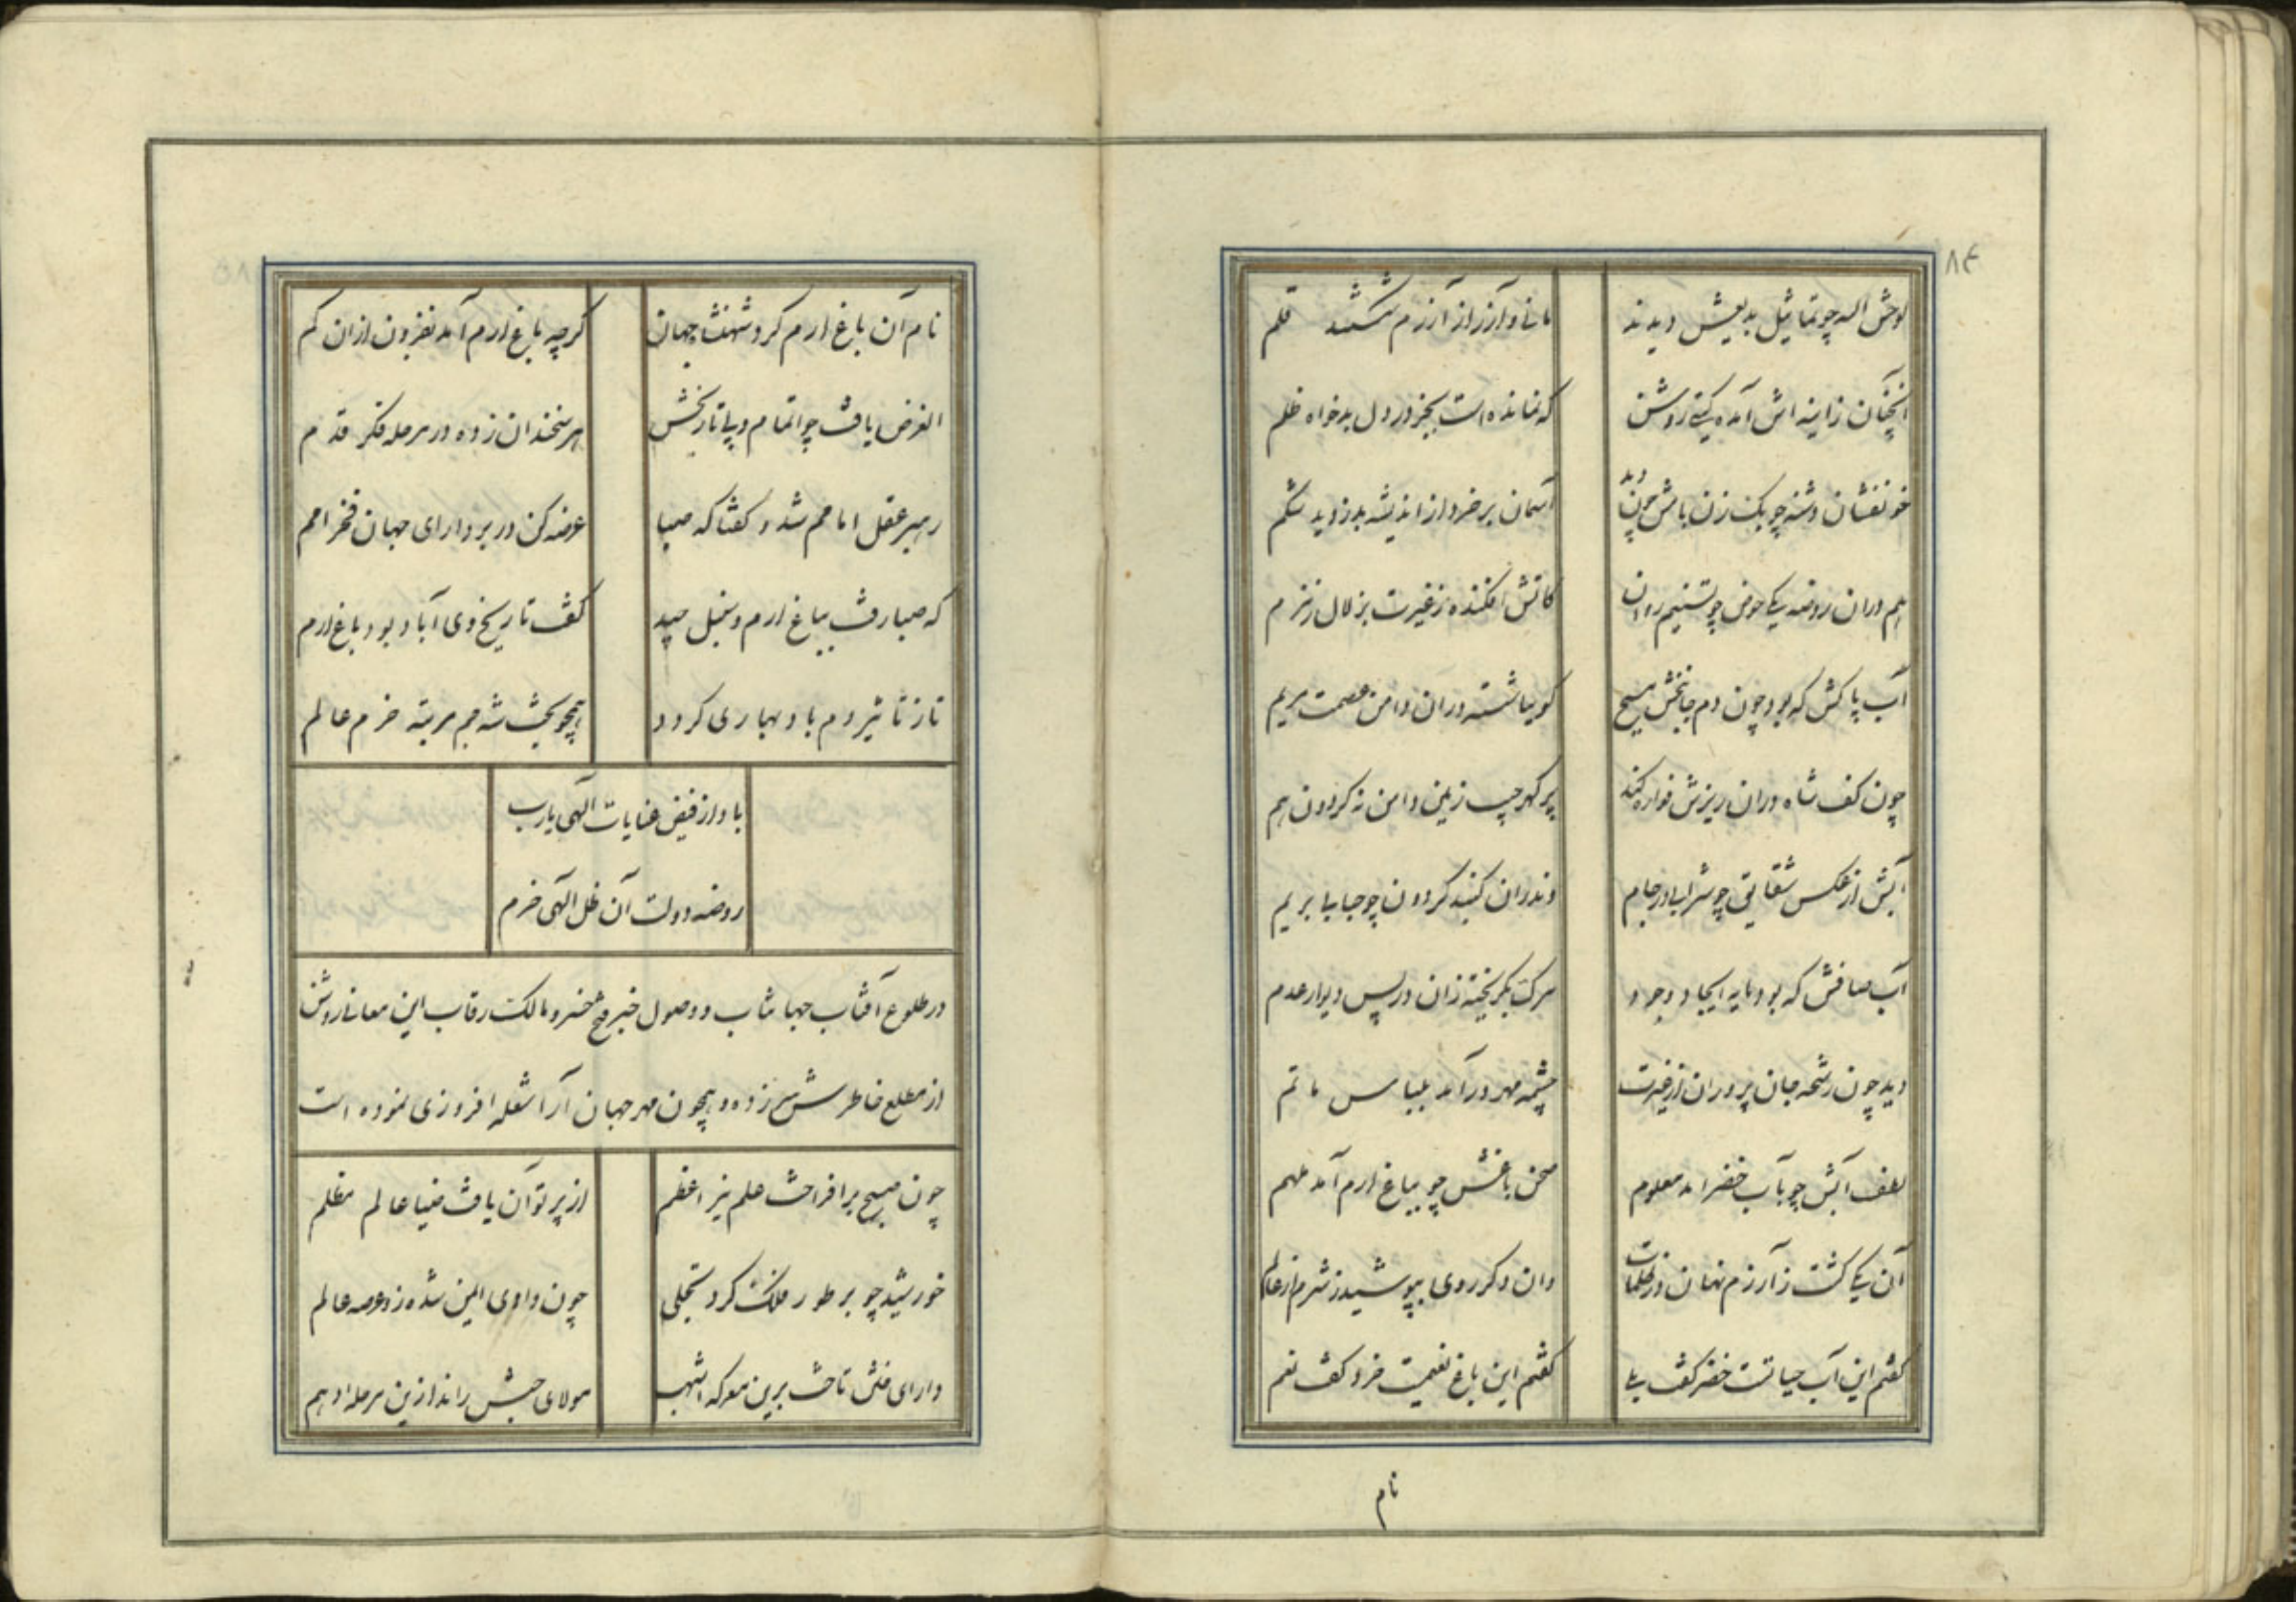 ۸۴
لوحش الله چو تماثیل بدیعش دیدند
مانی و آزر از آزرم شکستند قلم
آنچنان ز اینه اش آمده گیتی روشن
که نمانده است بجز در دل بدخواه ظلم
خونفشان دشنه چو بک زن بامش چون دید
آسمان بر خود از اندیشه بدزدید شکم
هم در آن روضه یکی حوض چو تسنیم روان
کاتش افکنده ز غیرت بزلال زمزم
آب پاکش که بود چون دم جانبخش مسیح
گوییا شسته در آن دامن عصمت مریم
چون کف شاه در آن ریزش فواره کند
پر گهر جیب زمین دامن نه گردون هم
آبش از عکس شقایق چو شراب اندر جام
وندر آن گنبد گردون چو حبابی بر یم
آب صافش که بود مایه ایجاد وجود
مرگ بگریخته زان در پس دیوار عدم
دید چون رشحه جان پرور آن از غیرت
چشمه مهر در آمد بلباس ماتم
لطف آبش چو بآب خضر آمد معلوم
صحن باغش چو بباغ ارم آمد ملهم
آن یکی گشت ز آزرم نهان در ظلمات
وان دگر روی بپوشید ز شرم از عالم
گفتم این آب حیاتست خضر گفت بلی
گفتم این باغ نعیمت خرد گفت نعم
نام
نام آن باغ ارم کرد شهنشاه جهان
گرچه باغ ارم آمد نفزون از آن کم
الغرض یافت چو اتمام و پی تاریخش
هر سخندان زده در مرحله فکر قدم
رهبر عقل امامم شد و گفتا که صبا
عرضه کن در بر دارای جهان فخر امم
که صبا رفت بباغ ارم و سنبل چید
گفت تاریخ وی آباد بود باغ ارم
تا ز تاثیر دم باد بهاری گردد
همچو بخت شه جم مرتبه خرم عالم
باد از فیض عنایات الهی یارب
روضه دولت آن ظل الهی خرم
در طلوع آفتاب جهانتاب و وصول خبر فتح خسرو مالک رقاب این معانی روشن
از مطلع خاطرش سر زده و همچون مهر جهان آرا شعله افروزی نموده است
چون صبح برافراخت علم نیر اعظم
از پرتو آن یافت ضیا عالم مظلم
خورشید چو بر طور فلک کرد تجلی
چون وادی ایمن شده زو عرصه عالم
دارای ختن تاخت برین معرکه اشهب
مولای حبش راند ازین مرحله ادهم